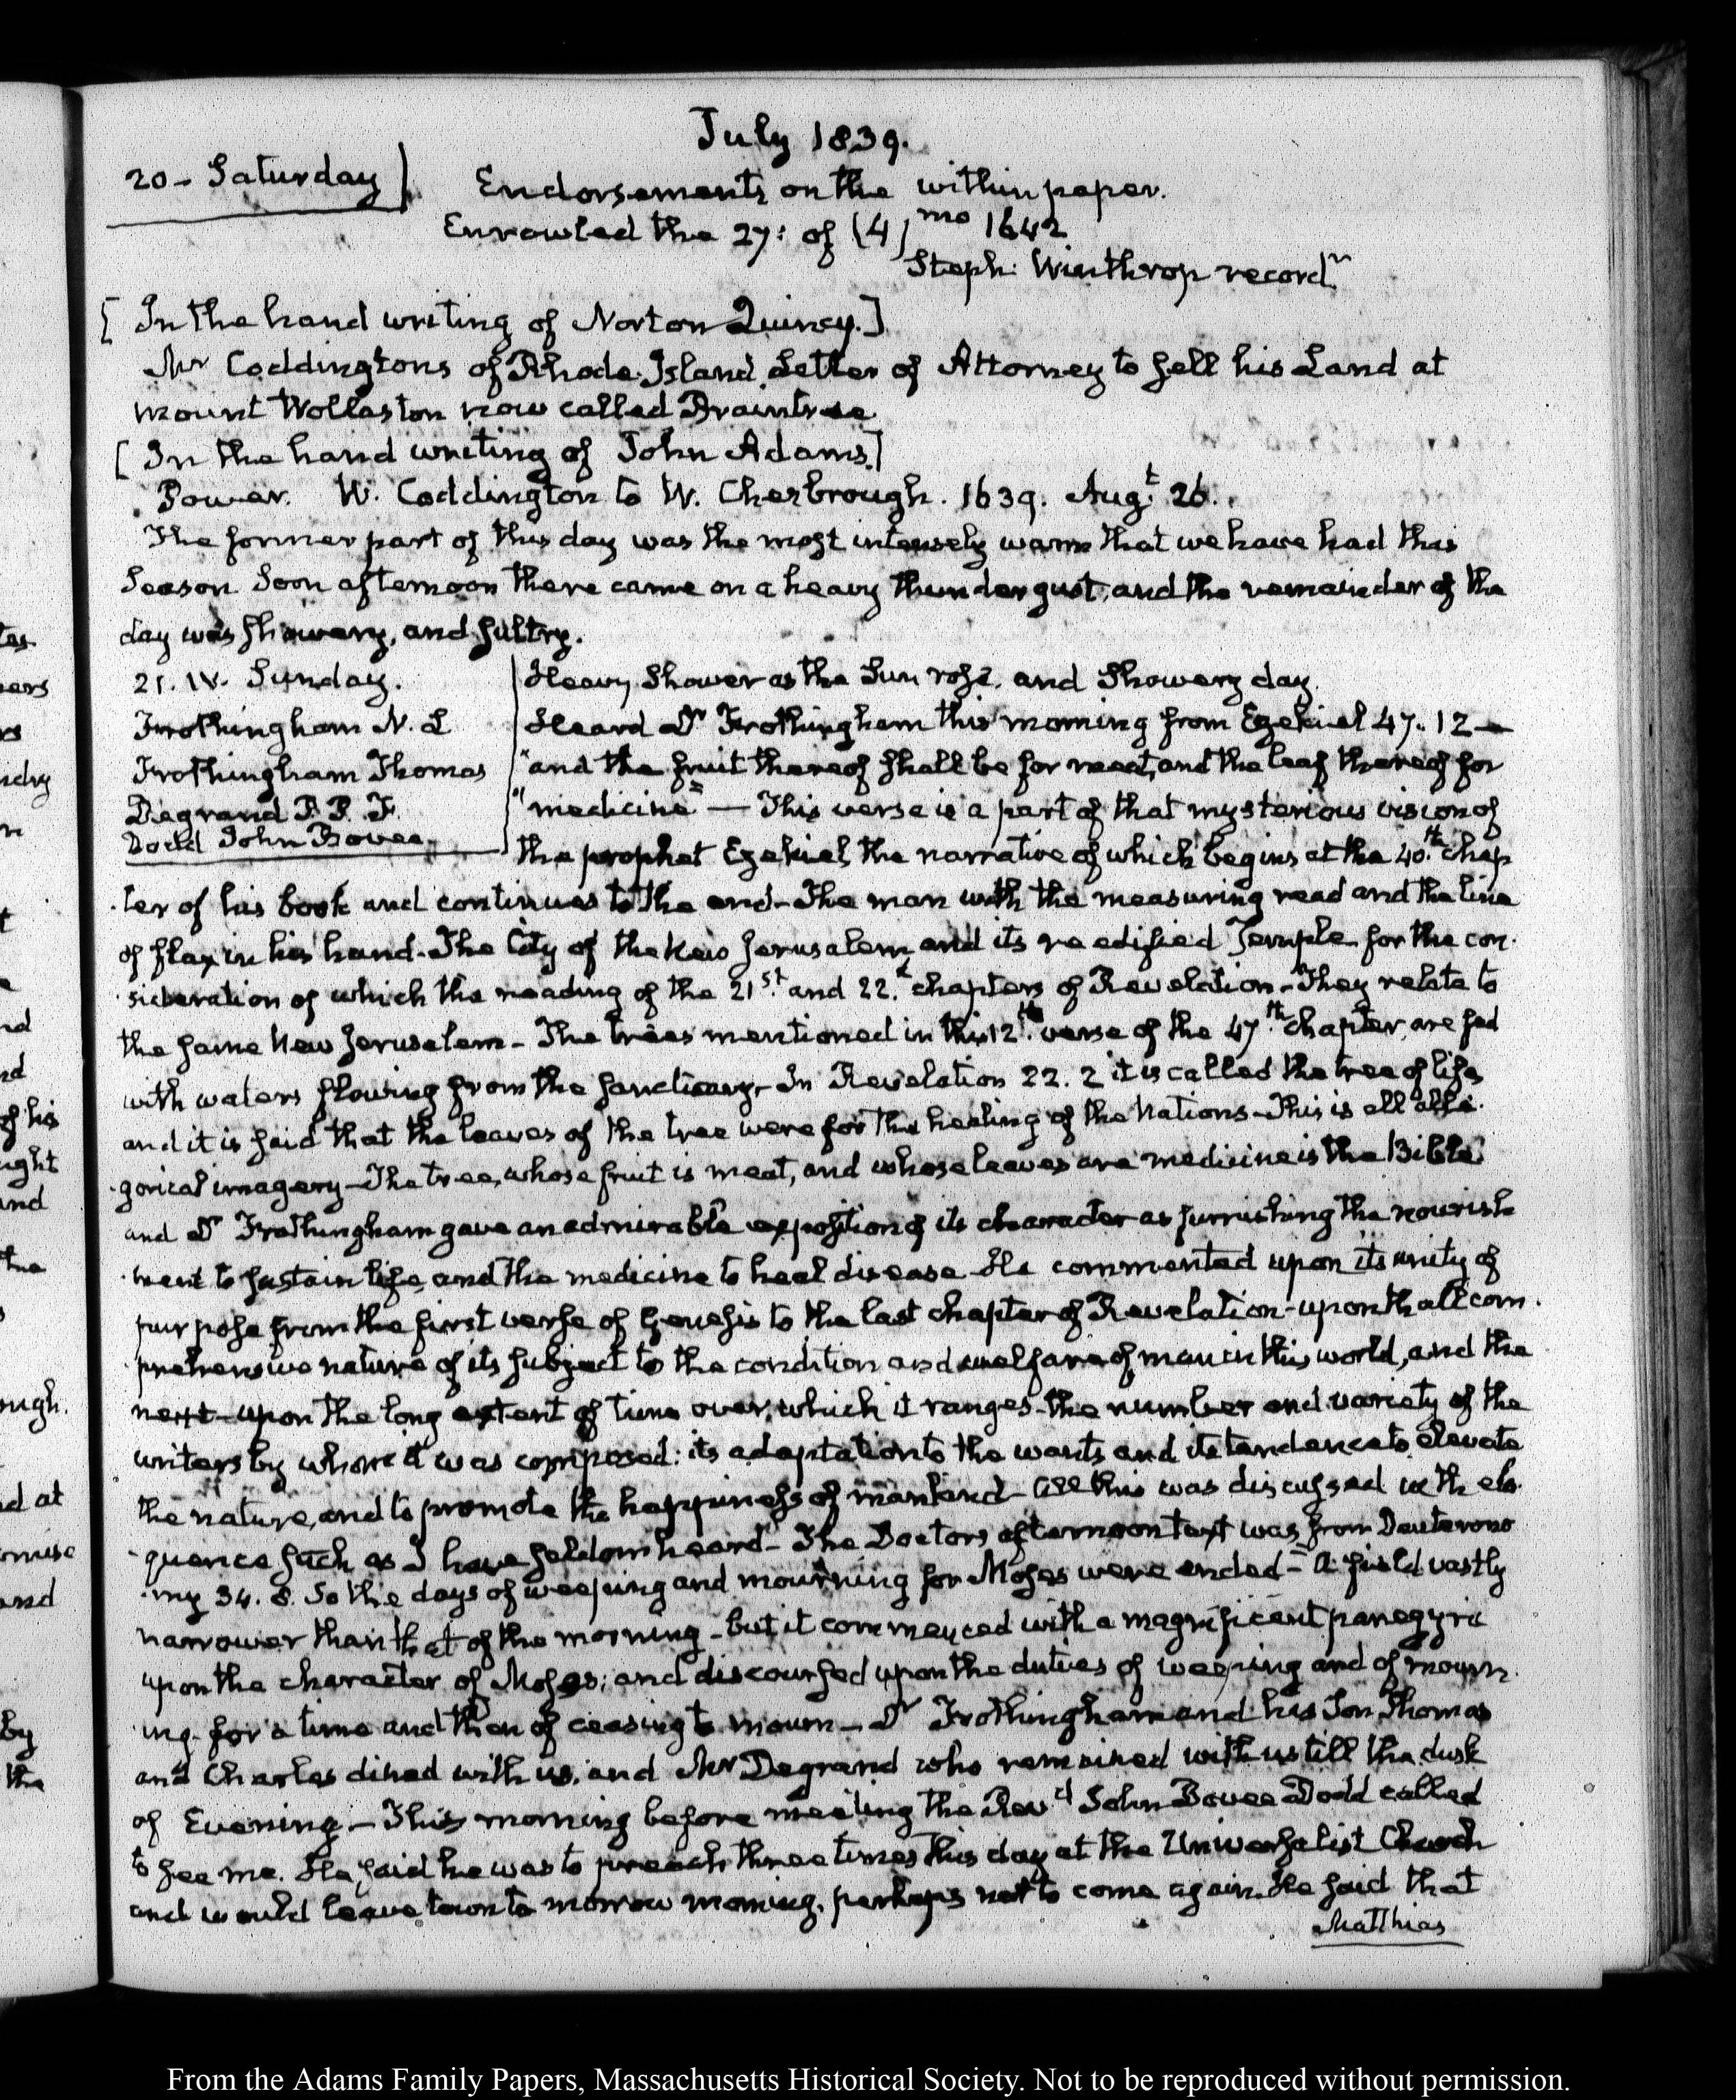 July 1839.
20 - Saturday
Endorsements on the within paper.
Enrowled the 27: of (4) mo 1642
Steph: Winthrop record
[In the hand writing of Norton Quincy.]
Mr Coddingtons of Rhode Island Letter of Attorney to sell his Land at
mount Wollaston now called Braintree
[In the hand writing of John Adams]
Power. W. Coddington to W. Chesbrough. 1639. Augt. 26.
The former part of this day was the most intensely warm that we have had this
Season. Soon afternoon there came on a heavy thunder gust, and the remainder of the
day was showery, and sultry.
21. IV. Sunday.
Frothingham N. L
Frothingham Thomas
Degrand P. P. F.
Dodd John Bovee
Heavy Shower as the Sun rose, and Showery day
Heard Dr Frothingham this morning from Ezekiel 47. 12 —
"and the fruit thereof shall be for meat, and the leaf thereof for
"medicine" — This verse is a part of that mysterious vision of
the prophet Ezekiel, the narrative of which begins at the 40.th chap
ter of his book and continues to the end - The man with the measuring reed and the line
of flax in his hand. The City of the New Jerusalem and its re edified Temple for the con-
sideration of which the reading of the 21st. and 22.d chapters of Revelation - They relate to
the same New Jerusalem - The trees mentioned in this 12.th verse of the 47.th chapter, are fed
with waters flowing from the sanctuary - In Revelation 22. 2 it is called the tree of life
and it is said that the leaves of the tree were for the healing of the Nations - This is all alle-
gorical imagery - The tree, whose fruit is meat, and whose leaves are medicine is the Bible
and Dr Frothingham gave an admirable exposition of its character as furnishing the nourish
ment to sustain life, and the medicine to heal disease - He commented upon its unity of
purpose from the first verse of Genesis to the last chapter of Revelation - upon th all com-
prehensive nature of its subject to the condition and welfare of man in this world, and the
next - upon the long extent of time over which it ranges - the number and variety of the
writers by whom it was composed: its adaptation to the wants and its tendence to elevate
the nature, and to promote the happiness of mankind - All this was discussed with elo-
quence such as I have seldom heard - The Doctors afternoon text was from Deuterono
my 34. 8. So the days of weeping and mourning for Moses were ended - A field vastly
narrower than that of the morning - but it commenced with a magnificent panegyric
upon the character of Moses; and discoursed upon the duties of weeping and of mourn-
ing for a time and then of ceasing to mourn - Dr Frothingham and his Son Thomas
and Charles dined with us, and Mr Degrand who remained with us till the dusk
of Evening - This morning before meeting the Revd John Bovee Dodd called
to see me. He said he was to preach three times this day at the Universalist Church
and would leave town to morrow morning, perhaps not to come again. He said that
Matthias
From the Adams Family Papers, Massachusetts Historical Society. Not to be reproduced without permission.